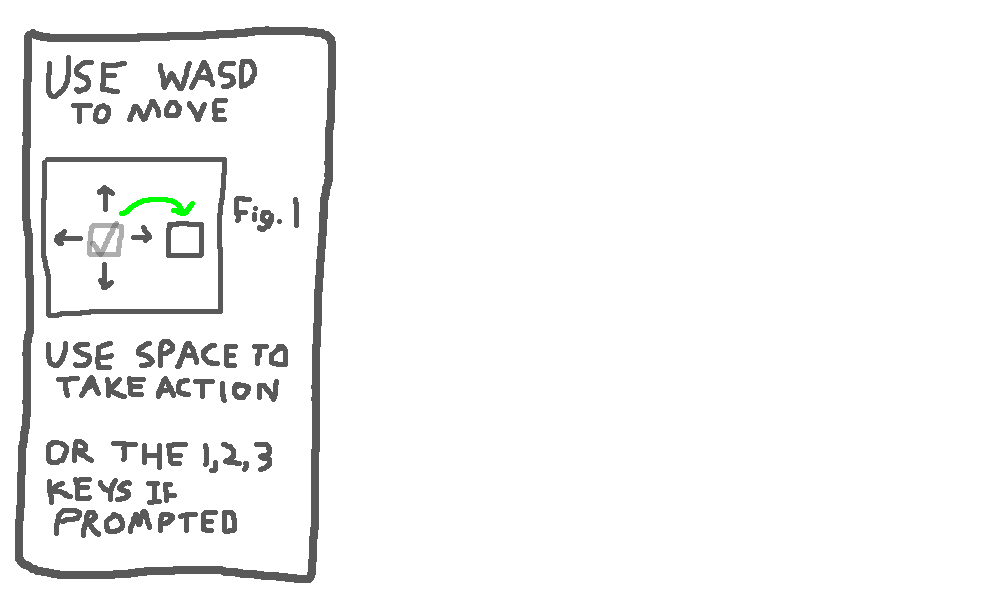 USE WASD
TO MOVE
Fig. 1
USE SPACE TO
TAKE ACTION
OR THE 1,2,3
KEYS IF
PROMPTED